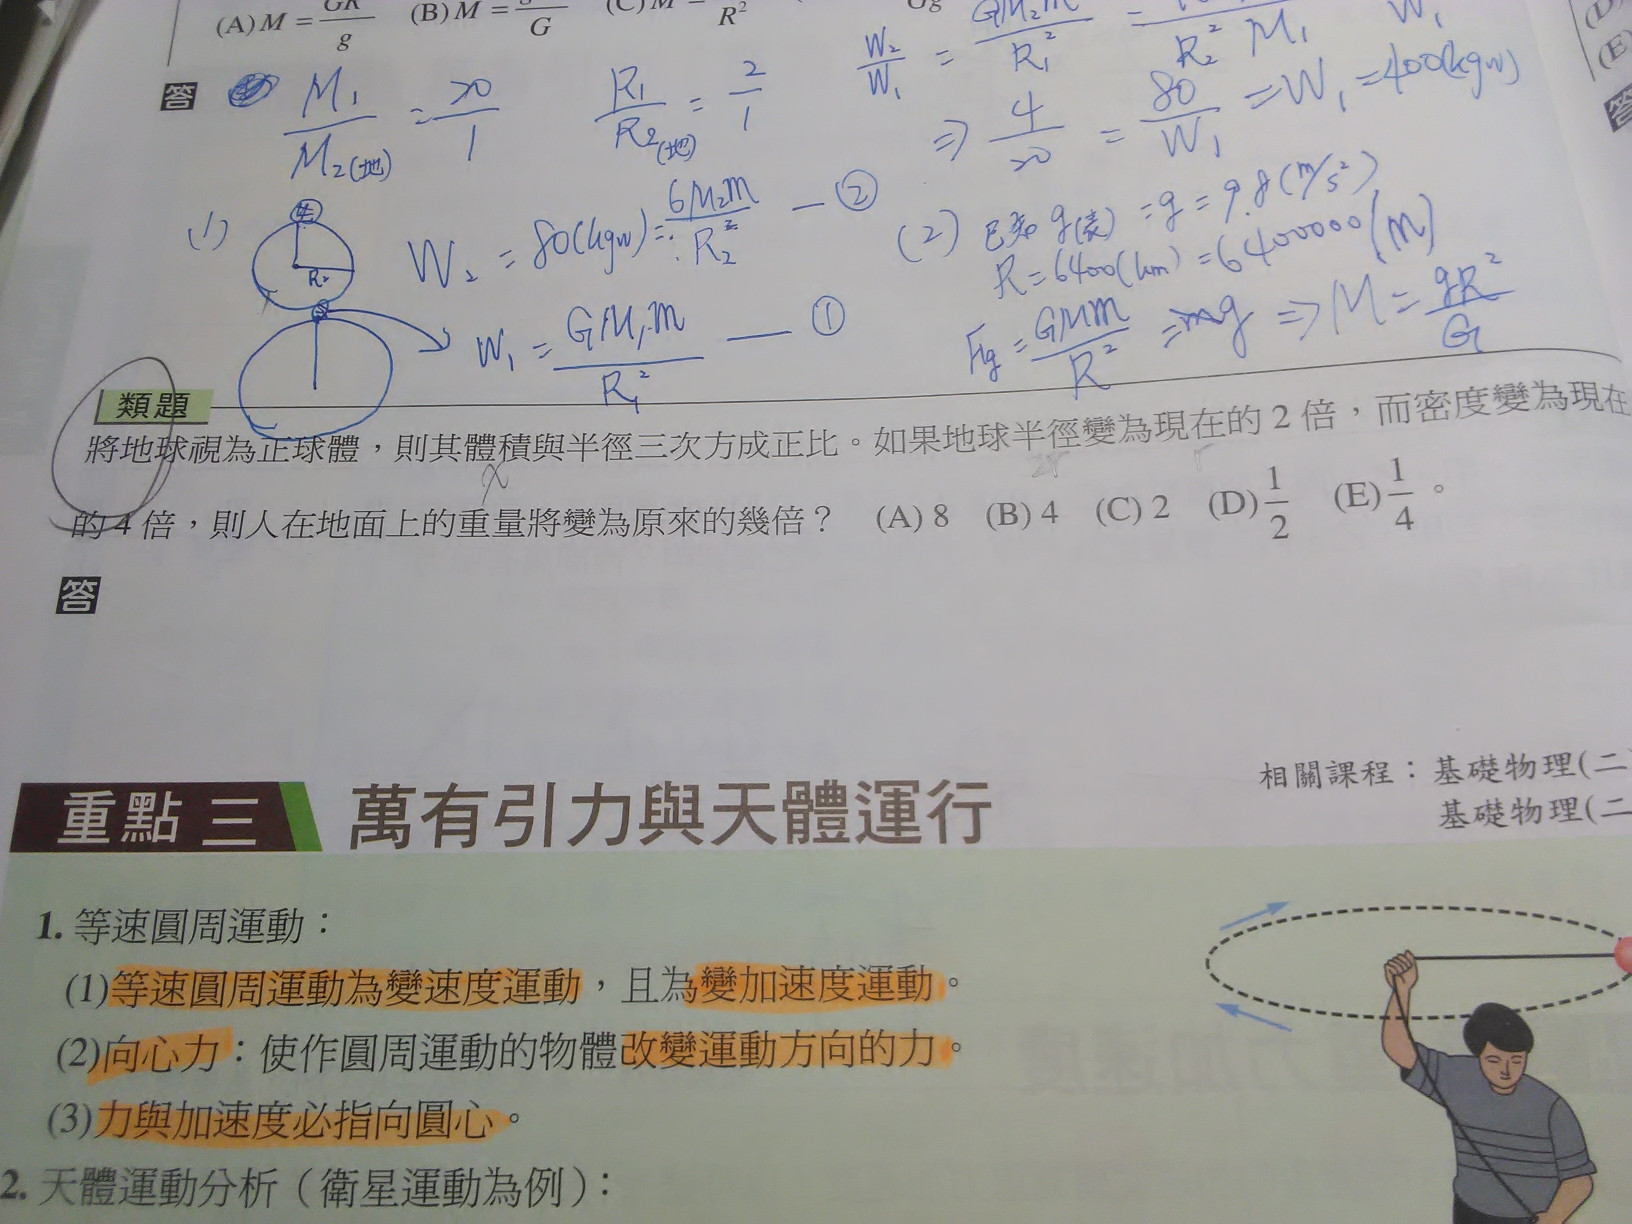 (A) M = GR/g (B) M = G (C) M R²
答 M₁/M₂(地) = 20/1 R₁/R₂(地) = 2/1
W₂/W₁ = GM₂m/R₁² = R₂² M₁ W₁
⇒ 4/20 = 80/W₁ = W₁ = 400(kgw)
(1) R₂ W₂ = 80(kgw) = GM₂m/R₂² — ②
W₁ = GM₁m/R₁² — ①
(2) 已知 g(表) = g = 9.8(m/s²)
R = 6400(km) = 6400000(m)
Fg = GMm/R² = mg ⇒ M = gR²/G
類題
將地球視為正球體,則其體積與半徑三次方成正比。如果地球半徑變為現在的 2 倍,而密度變為現在
的 4 倍,則人在地面上的重量將變為原來的幾倍? (A) 8 (B) 4 (C) 2 (D) 1/2 (E) 1/4 。
答
重點三 萬有引力與天體運行
相關課程:基礎物理(二
基礎物理(二
1. 等速圓周運動:
(1)等速圓周運動為變速度運動,且為變加速度運動。
(2)向心力:使作圓周運動的物體改變運動方向的力。
(3)力與加速度必指向圓心。
2. 天體運動分析(衛星運動為例):